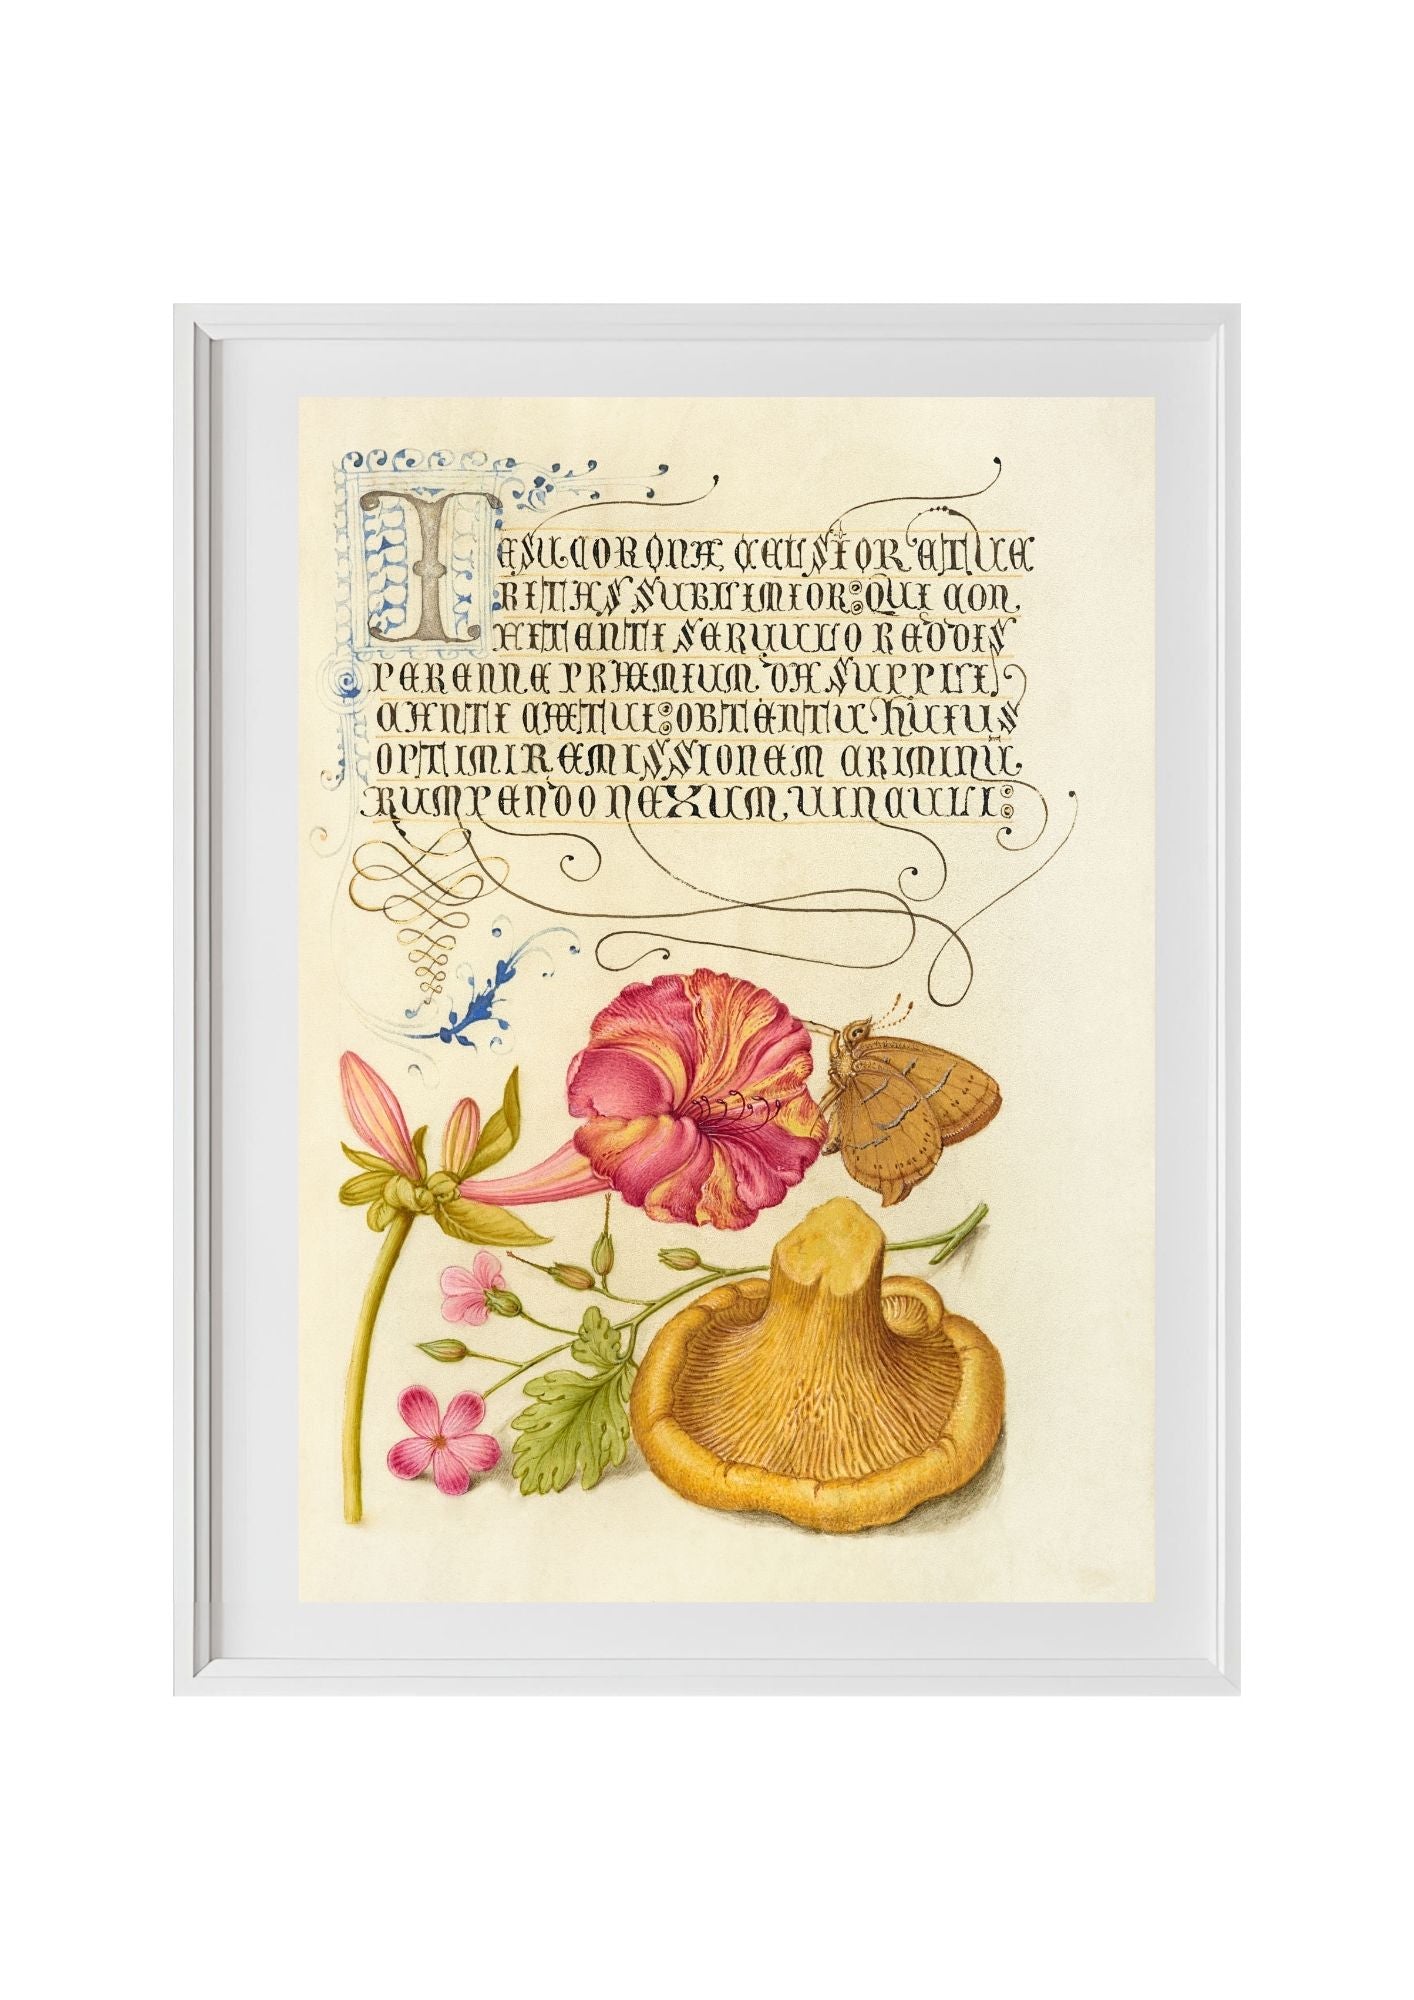 IESU CORONÆ, CELSIOR ET UE
RITAS SUBLIMIOR: QUI CON,
FITENTI SERUULO REDDIS
PERENNE PRÆMIUM. DA SUPPLI
CANTI CÆTUI: OBTENTU HUIUS
OPTIMI REMISSIONEM CRIMINŪ
RUMPENDO NEXUM, UINCULI: